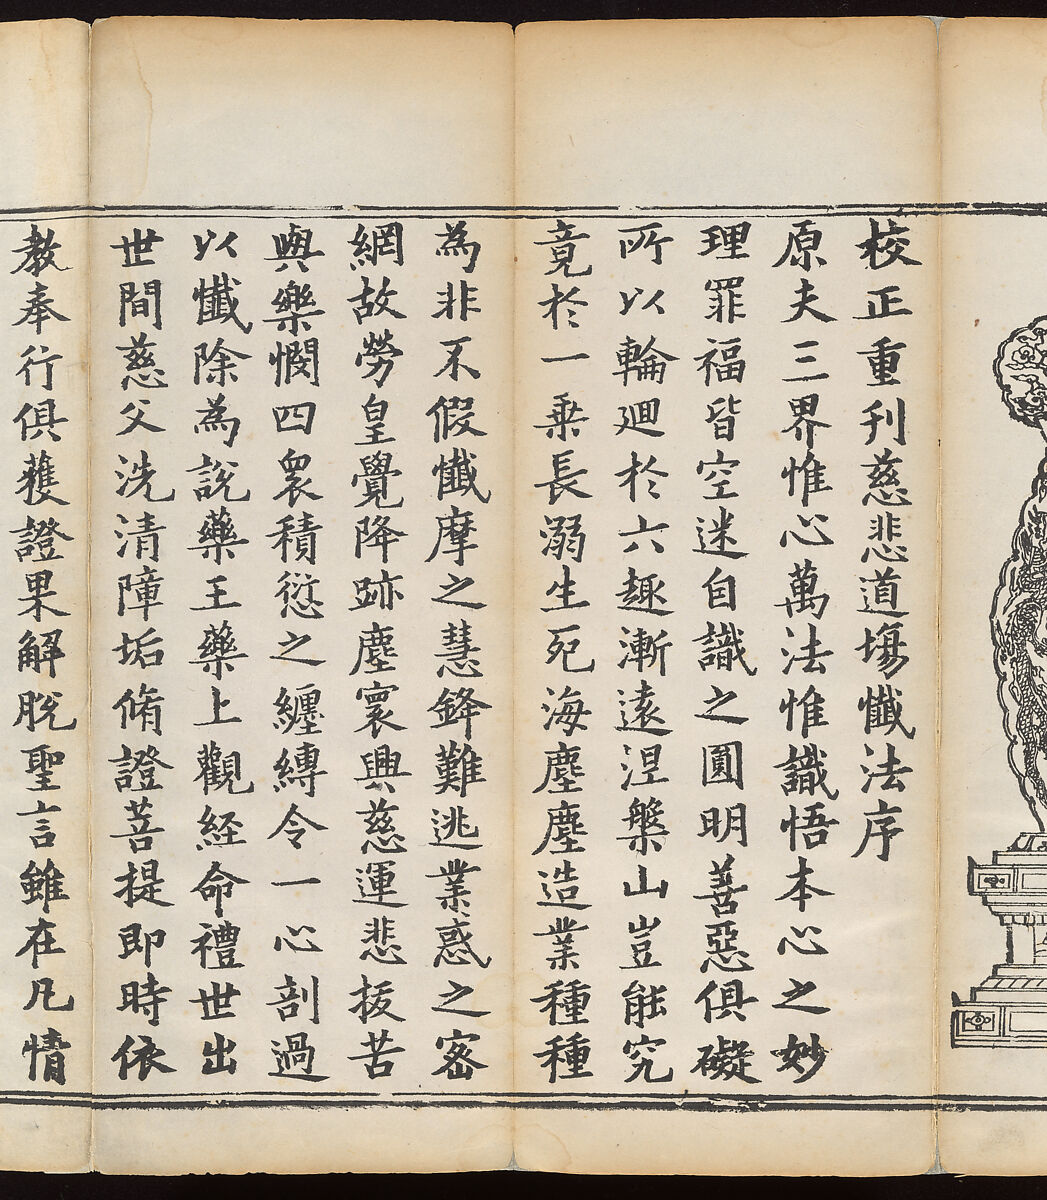 校正重刊慈悲道場懺法序
原夫三界惟心萬法惟識悟本心之妙
理罪福皆空迷自識之圓明善惡俱礙
所以輪迴於六趣漸遠涅槃山豈能究
竟於一乗長溺生死海塵塵造業種種
為非不假懺摩之慧鋒難逃業惑之密
網故勞皇覺降跡塵寰興慈運悲拔苦
與樂憫四衆積愆之纏縛令一心剖過
以懺除為說藥王藥上觀経命禮世出
世間慈父洗清障垢脩證菩提即時依
教奉行俱獲證果解脫聖言雖在凡情